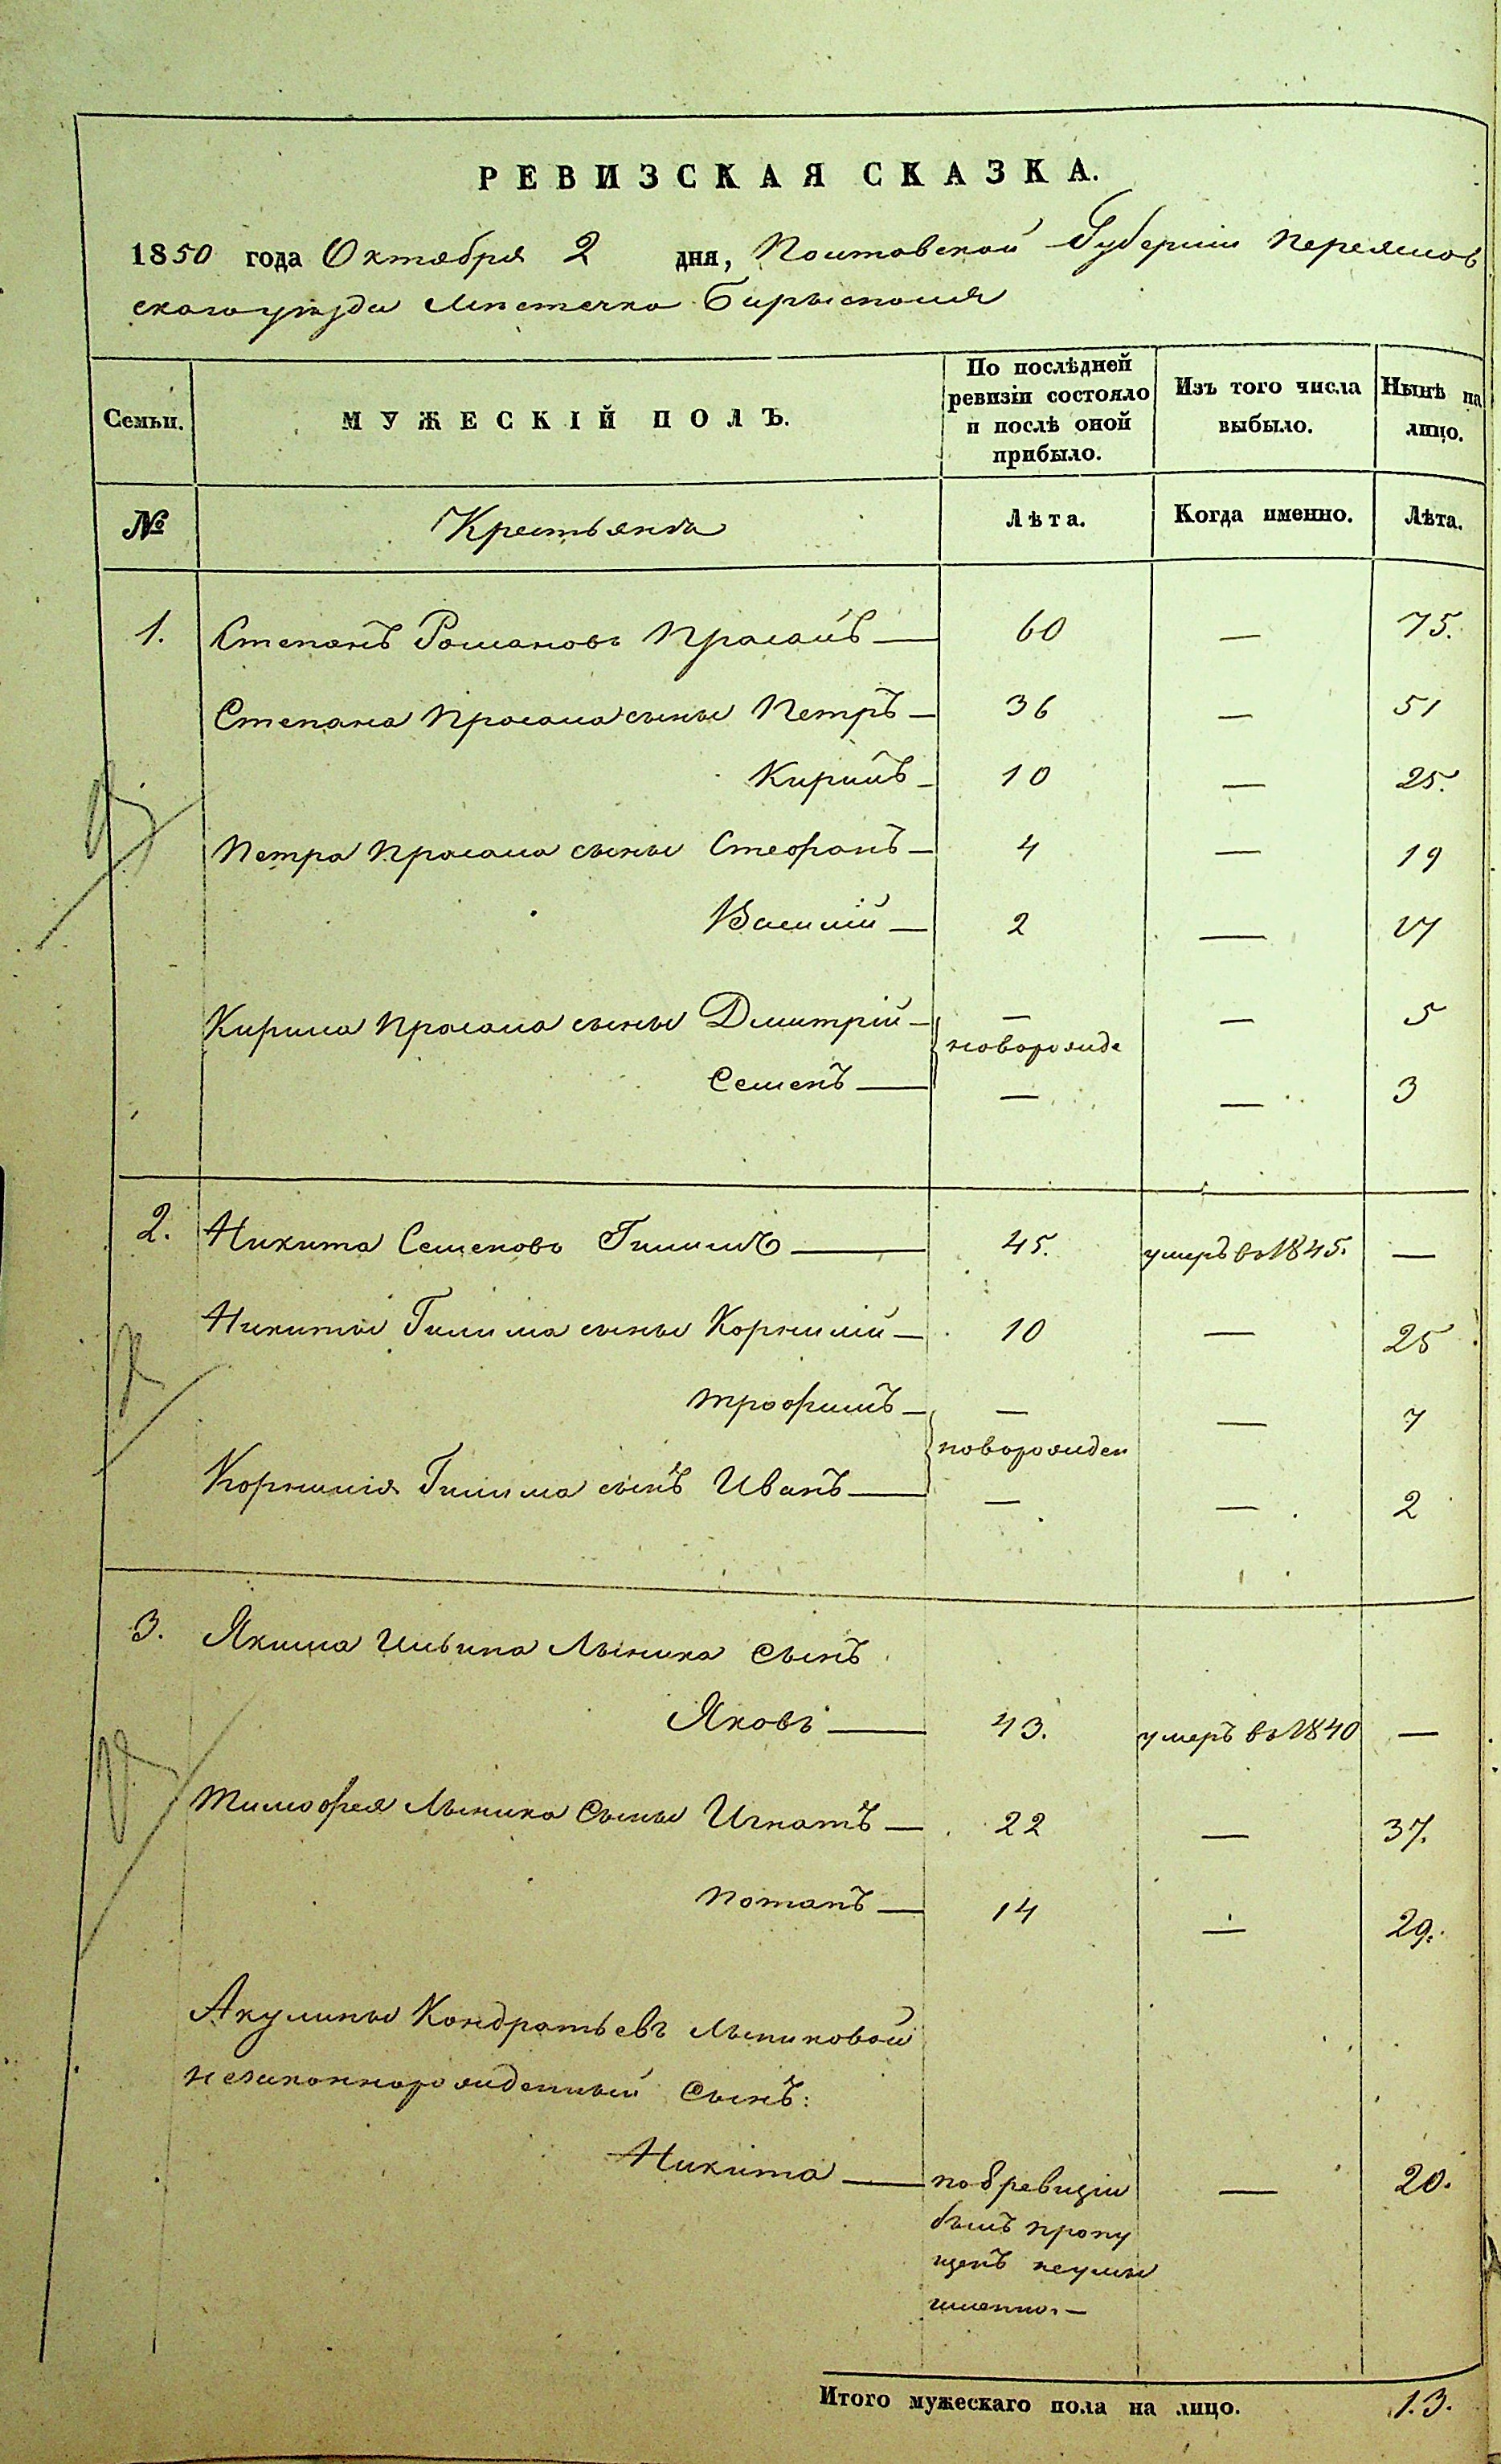 РЕВИЗСКАЯ СКАЗКА.
1850 года Октября 2 дня, Полтавской Губерніи Переяслов
скаго уѣзда Мѣстечка Барысполя
Семьи. МУЖЕСКІЙ ПОЛЪ. По послѣдней ревизіи состояло и послѣ оной прибыло. Изъ того числа выбыло. Нынѣ на лицо.
№ Крестьянъ Лѣта. Когда именно. Лѣта.
1. Степанъ Романовъ Прасолъ — 60 — 75.
Степана Прасола сыны Петръ — 36 — 51
Кирилъ — 10 — 25.
Петра Прасола сыны Стефанъ — 4 — 19
Василій — 2 — 17
Кирила Прасола сыны Дмитрій — — — 5
новорожде
Семенъ — — — 3
2. Никита Семеновъ — 45. умеръ въ 1845. —
Никиты сыны Корнилій — 10 — 25
Трофимъ — — — 7
новорожден
Корнилія сынъ Иванъ — — — 2
3. Якима Ильина Лысика сынъ
Яковъ — 43. умеръ въ 1840 —
Тимофея Лысика сыны Игнатъ — 22 — 37.
Потапъ — 14 — 29.
Акулины Кондратьевъ Лысиковой
незаконнорожденный сынъ:
Никита — по 8 ревизіи — 20.
былъ пропу
щенъ неумы
шленно. —
Итого мужескаго пола на лицо. 13.